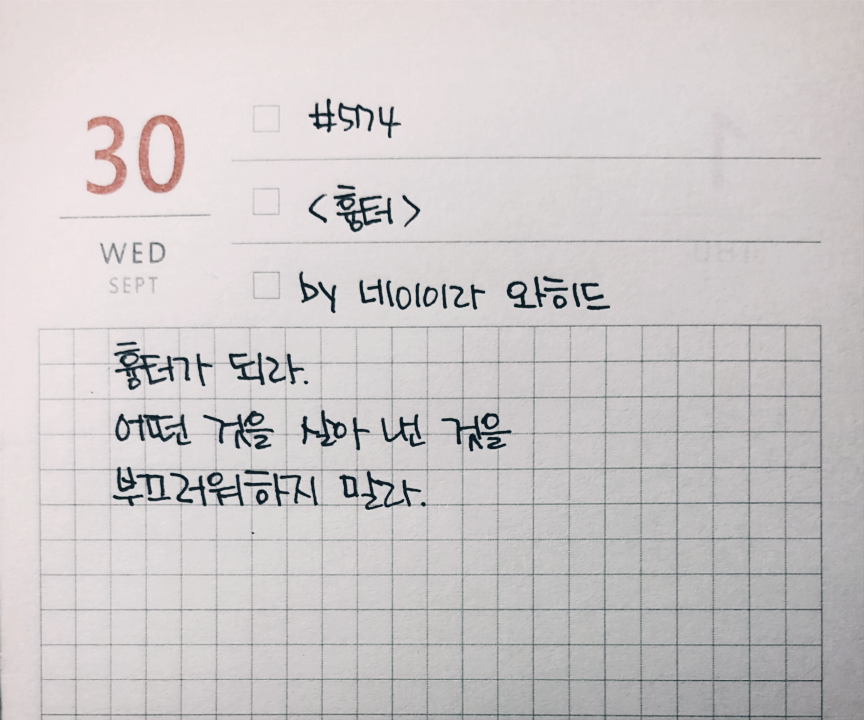 30
WED
SEPT
#574
<흉터>
by 네이이라 와히드
흉터가 되라.
어떤 것을 살아 낸 것을
부끄러워하지 말라.